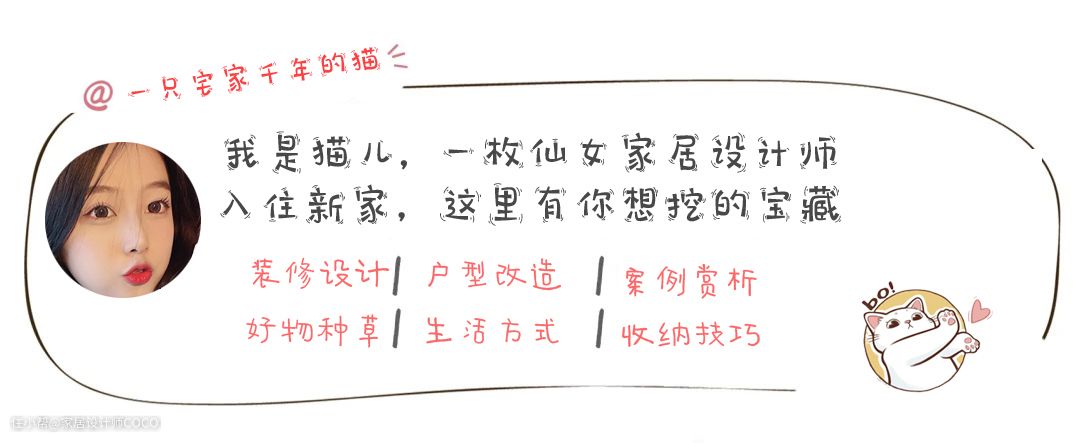 @一只宅家千年的猫
我是猫儿，一枚仙女家居设计师
入住新家，这里有你想挖的宝藏
装修设计 | 户型改造 | 案例赏析
好物种草 | 生活方式 | 收纳技巧
bo!
住小帮@家居设计师COCO